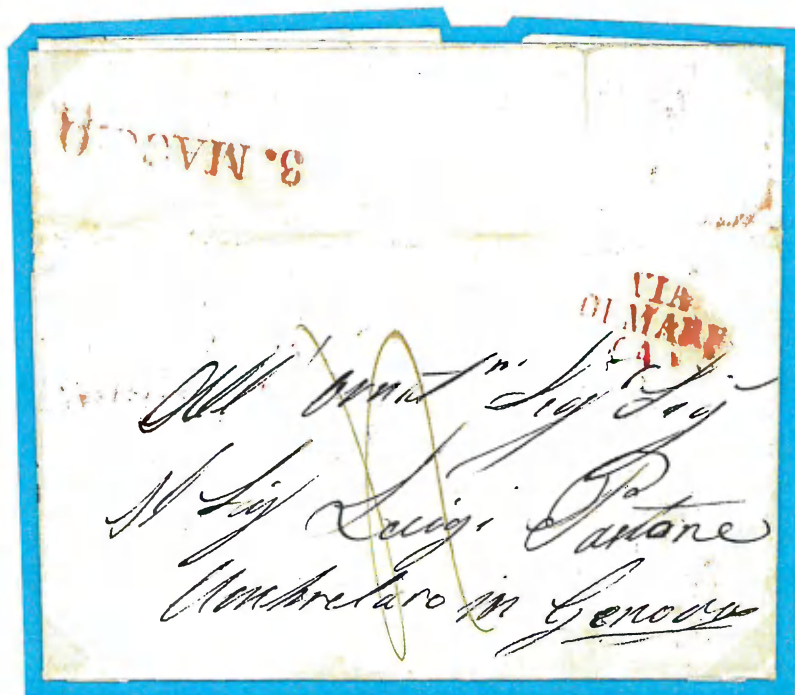 3. MAGGIO
VIA
DI MARE
All' ornat.mo Sig.r Sig.r
Il Sig.r Luigi
Umbrelaro in Genova